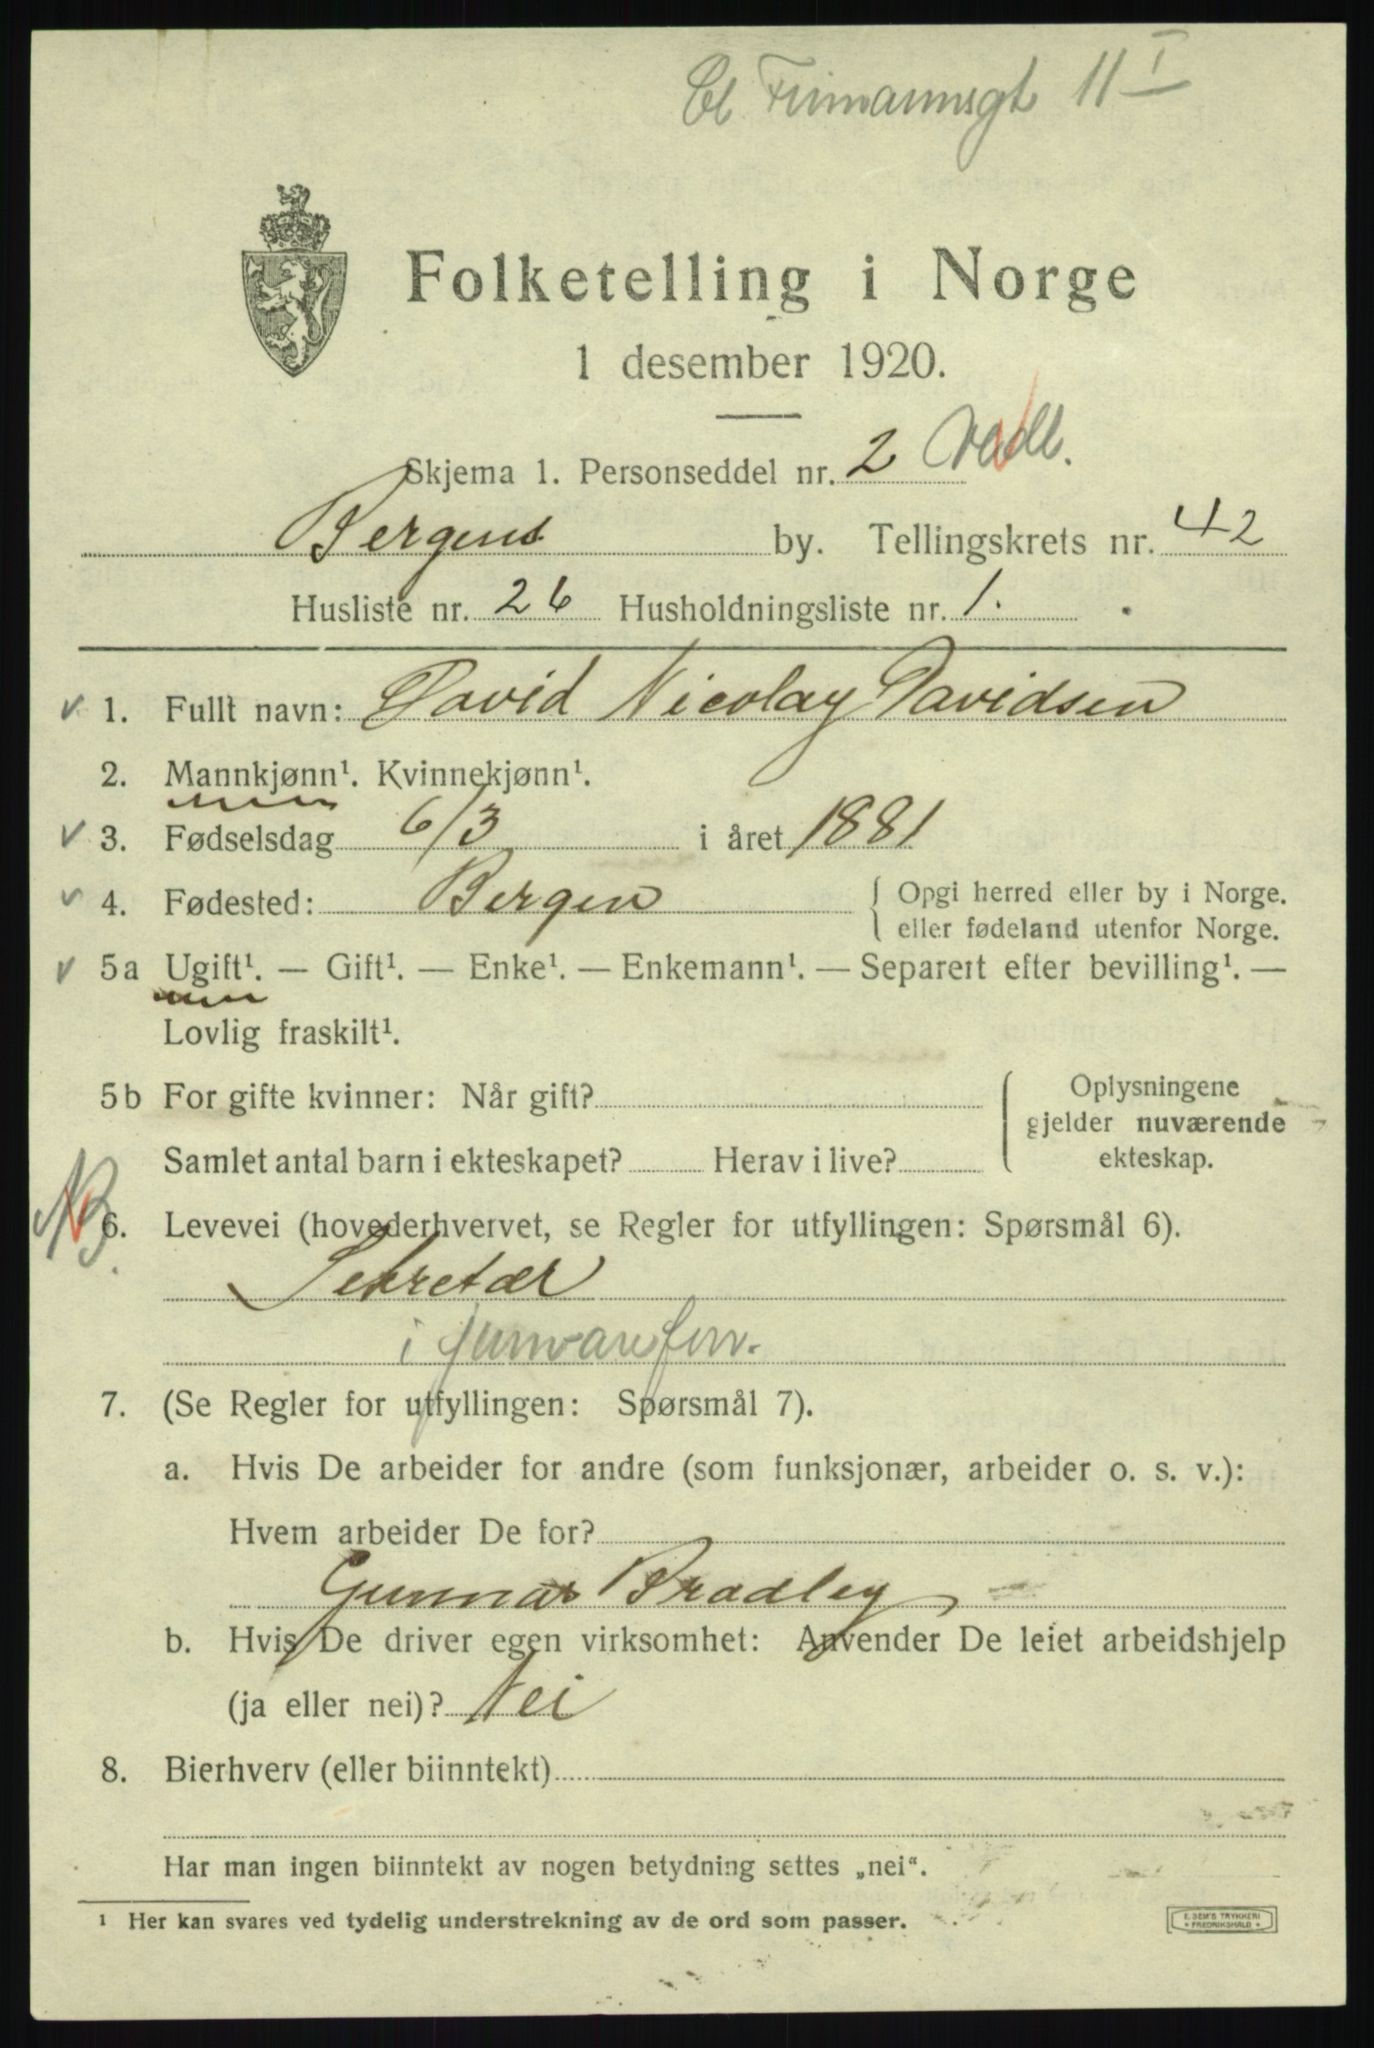 Cl Frimannsgt 11 I
Folketelling i Norge
1 desember 1920.
Skjema 1. Personseddel nr. 2
Bergens by. Tellingskrets nr. 42
Husliste nr. 26 Husholdningsliste nr. 1.
1. Fullt navn: David Nicolay Davidsen
2. Mannkjønn¹. Kvinnekjønn¹.
3. Fødselsdag 6/3 i året 1881
4. Fødested: Bergen { Opgi herred eller by i Norge.
eller fødeland utenfor Norge.
5a Ugift¹. — Gift¹. — Enke¹. — Enkemann¹. — Separert efter bevilling¹. —
Lovlig fraskilt¹.
5b For gifte kvinner: Når gift? { Oplysningene
gjelder nuværende
Samlet antal barn i ekteskapet? Herav i live? ekteskap.
NB.
6. Levevei (hovederhvervet, se Regler for utfyllingen: Spørsmål 6).
Sekretær
i jernvareforr.
7. (Se Regler for utfyllingen: Spørsmål 7).
a. Hvis De arbeider for andre (som funksjonær, arbeider o. s. v.):
Hvem arbeider De for?
Gunnar Bradley
b. Hvis De driver egen virksomhet: Anvender De leiet arbeidshjelp
(ja eller nei)? Nei
8. Bierhverv (eller biinntekt)
Har man ingen biinntekt av nogen betydning settes „nei“.
¹ Her kan svares ved tydelig understrekning av de ord som passer.
E. SEM'S TRYKKERI
* FREDRIKSHALD *